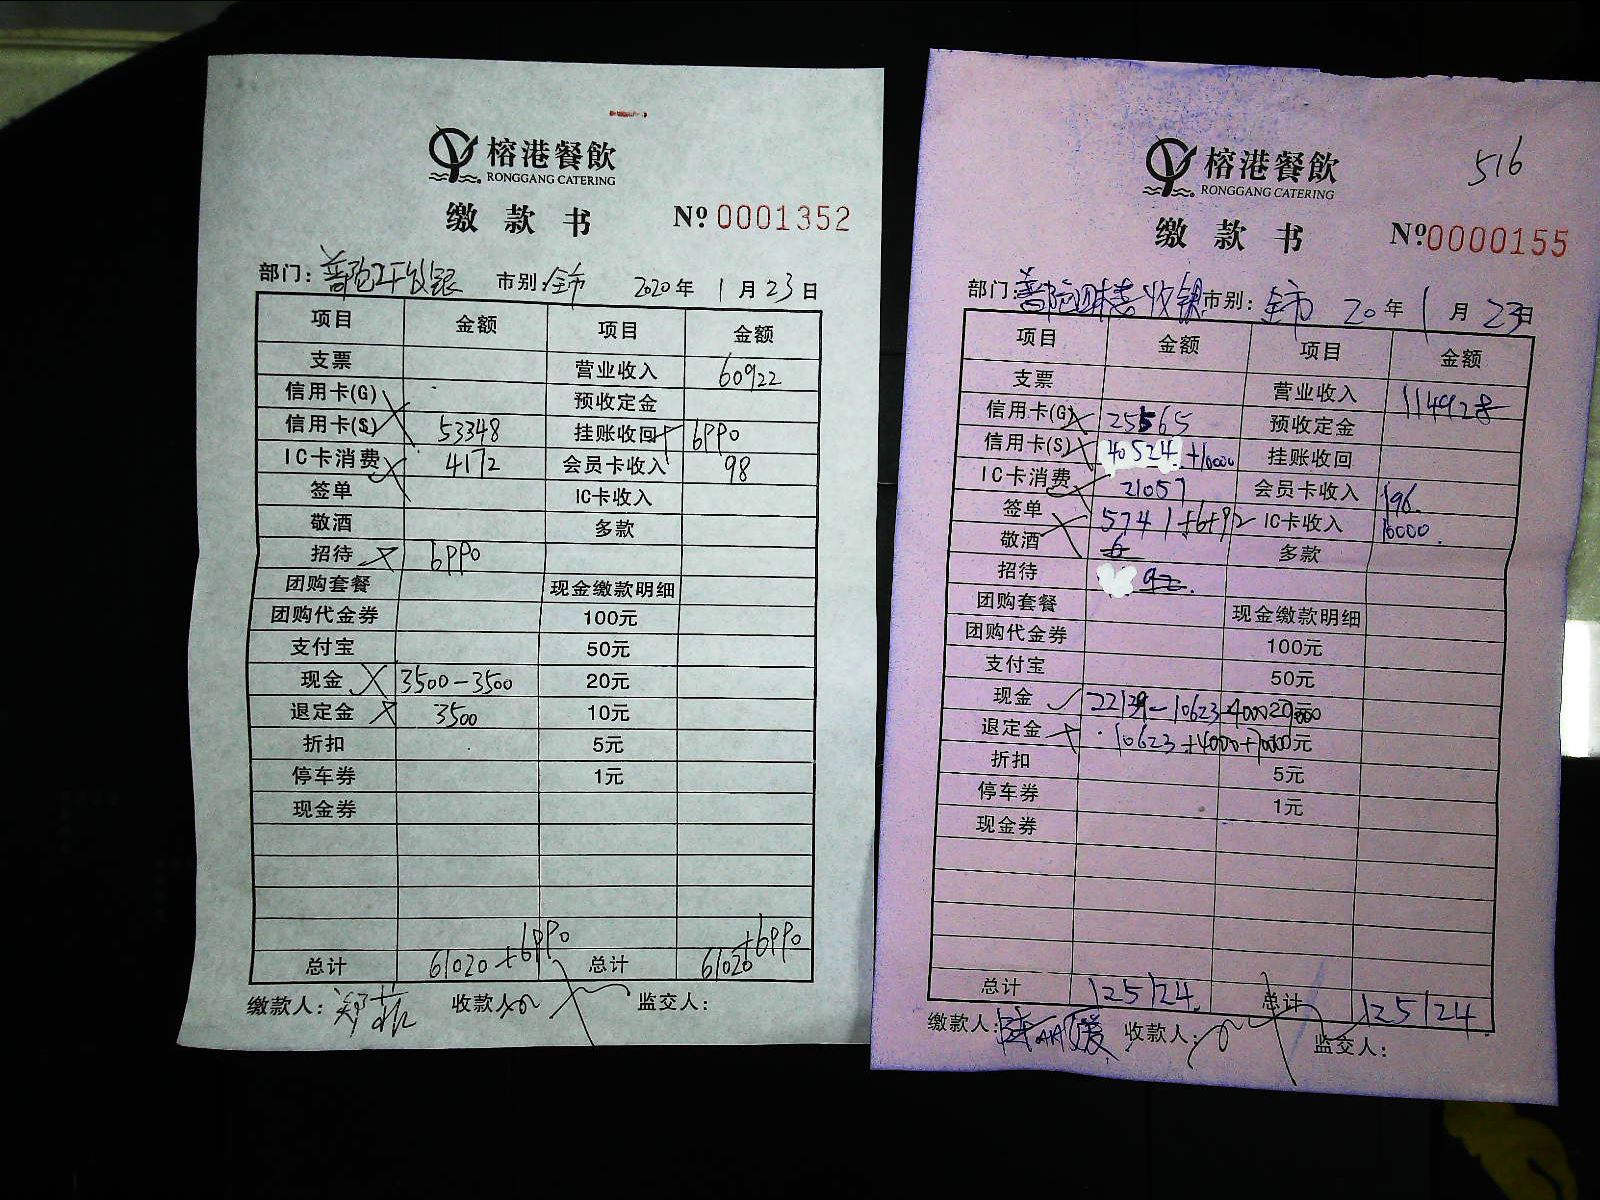 榕港餐飲
RONGGANG CATERING
缴款书 №0001352
部门: 收银 市别: 全市 2020年1月23日
项目 金额 项目 金额
支票 营业收入 60922
信用卡(G) 预收定金
信用卡(S) 53348 挂账收回 6990
IC卡消费 4172 会员卡收入 98
签单 IC卡收入
敬酒 多款
招待 6990
团购套餐 现金缴款明细
团购代金券 100元
支付宝 50元
现金 3500-3500 20元
退定金 3500 10元
折扣 5元
停车券 1元
现金券
总计 61020+6990 总计 61020+6990
缴款人: 收款人: 监交人:
516
榕港餐飲
RONGGANG CATERING
缴款书 №0000155
部门: 收银 市别: 全市 20年1月23日
项目 金额 项目 金额
支票 营业收入 114928
信用卡(G) 25565 预收定金
信用卡(S) 40524+10000 挂账收回
IC卡消费 21057 会员卡收入 196
签单 5741+6+92 IC卡收入 10000
敬酒 6 多款
招待 92
团购套餐 现金缴款明细
团购代金券 100元
支付宝 50元
现金 22139-10623-4000 20元
退定金 10623+4000+ 元
折扣 5元
停车券 1元
现金券
总计 125124 总计 125124
缴款人: 收款人: 监交人: